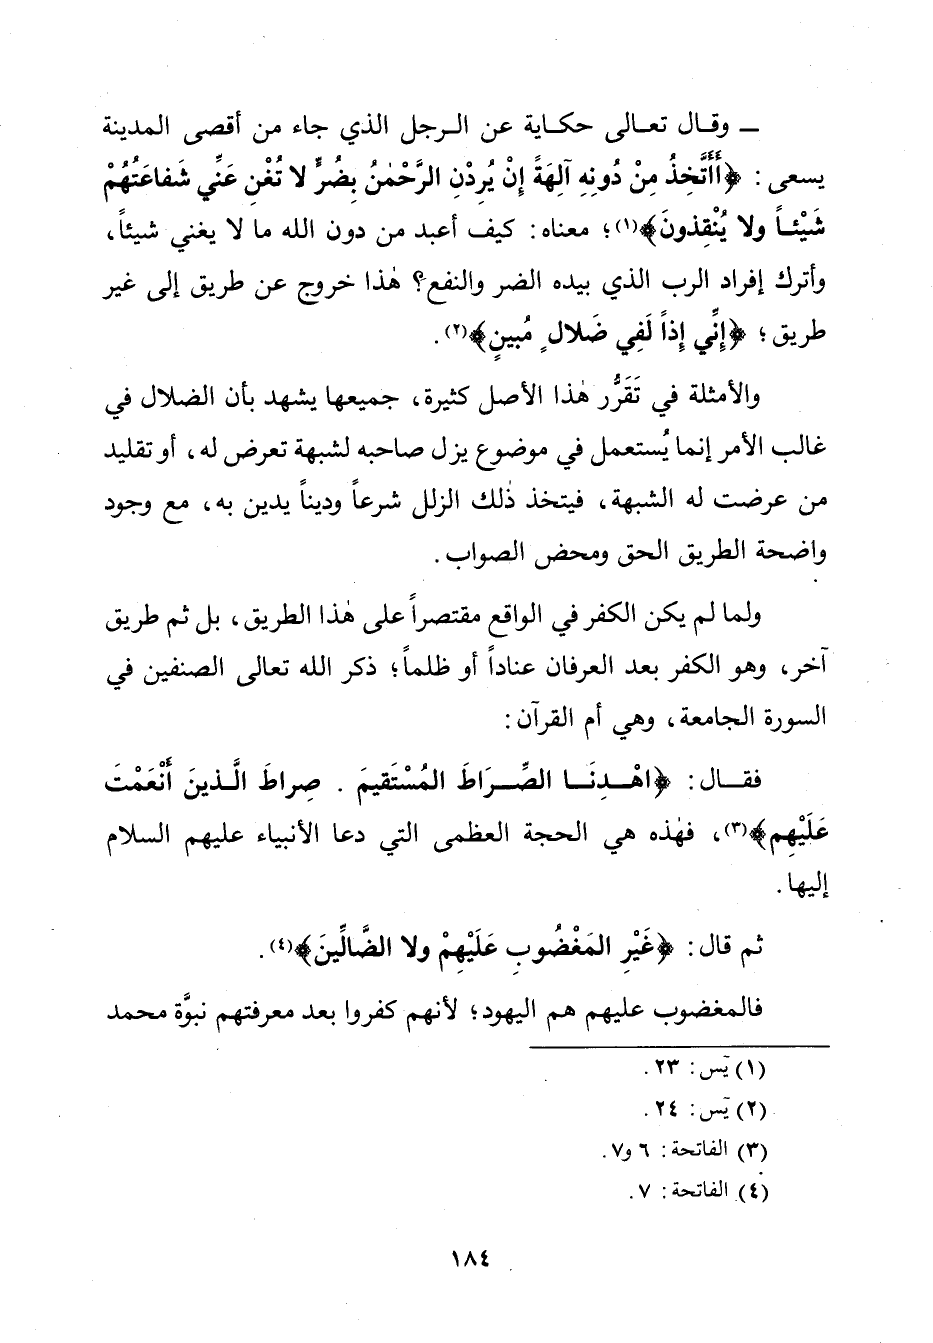 ـ وقـال تعـالى حكـاية عن الـرجل الذي جاء من أقصى المدينة
يسعى: ﴿أَأَتَّخِذُ مِنْ دُونِهِ آلِهَةً إِنْ يُرِدْنِ الرَّحْمٰنُ بِضُرٍّ لا تُغْنِ عَنِّي شَفاعَتُهُمْ
شَيْئـاً ولا يُنْقِذونَ﴾(١)؛ معناه: كيف أعبد من دون الله ما لا يغني شيئاً،
وأترك إفراد الرب الذي بيده الضر والنفع؟ هٰذا خروج عن طريق إلى غير
طريق؛ ﴿إِنِّي إِذاً لَفِي ضَلالٍ مُبينٍ﴾(٢).
والأمثلة في تَقَرُّر هٰذا الأصل كثيرة، جميعها يشهد بأن الضلال في
غالب الأمر إنما يُستعمل في موضوع يزل صاحبه لشبهة تعرض له، أو تقليد
من عرضت له الشبهة، فيتخذ ذٰلك الزلل شرعاً وديناً يدين به، مع وجود
واضحة الطريق الحق ومحض الصواب.
ولما لم يكن الكفر في الواقع مقتصراً على هٰذا الطريق، بل ثم طريق
آخر، وهو الكفر بعد العرفان عناداً أو ظلماً؛ ذكر الله تعالى الصنفين في
السورة الجامعة، وهي أم القرآن:
فقـال: ﴿اهْـدِنَـا الصِّـرَاطَ المُسْتَقيمَ . صِراطَ الَّـذينَ أَنْعَمْتَ
عَلَيْهِم﴾(٣)، فهٰذه هي الحجة العظمى التي دعا الأنبياء عليهم السلام
إليها.
ثم قال: ﴿غَيْرِ المَغْضُوبِ عَلَيْهِمْ ولا الضَّالِّينَ﴾(٤).
فالمغضوب عليهم هم اليهود؛ لأنهم كفروا بعد معرفتهم نبوَّة محمد
(١) يٓس: ٢٣.
(٢) يٓس: ٢٤.
(٣) الفاتحة: ٦ و٧.
(٤) الفاتحة: ٧.
١٨٤